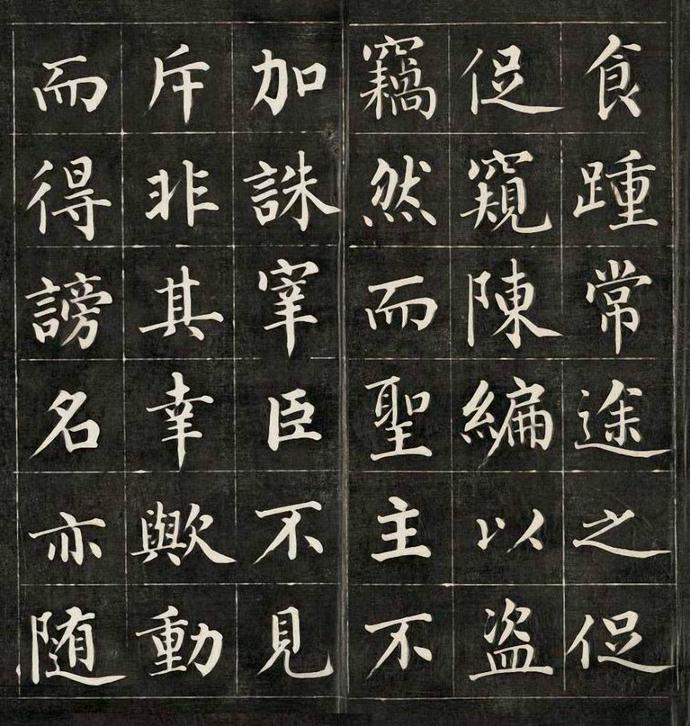 食踵常途之促
促窺陳編以盗
竊然而聖主不
加誅宰臣不見
斥非其幸歟動
而得謗名亦随